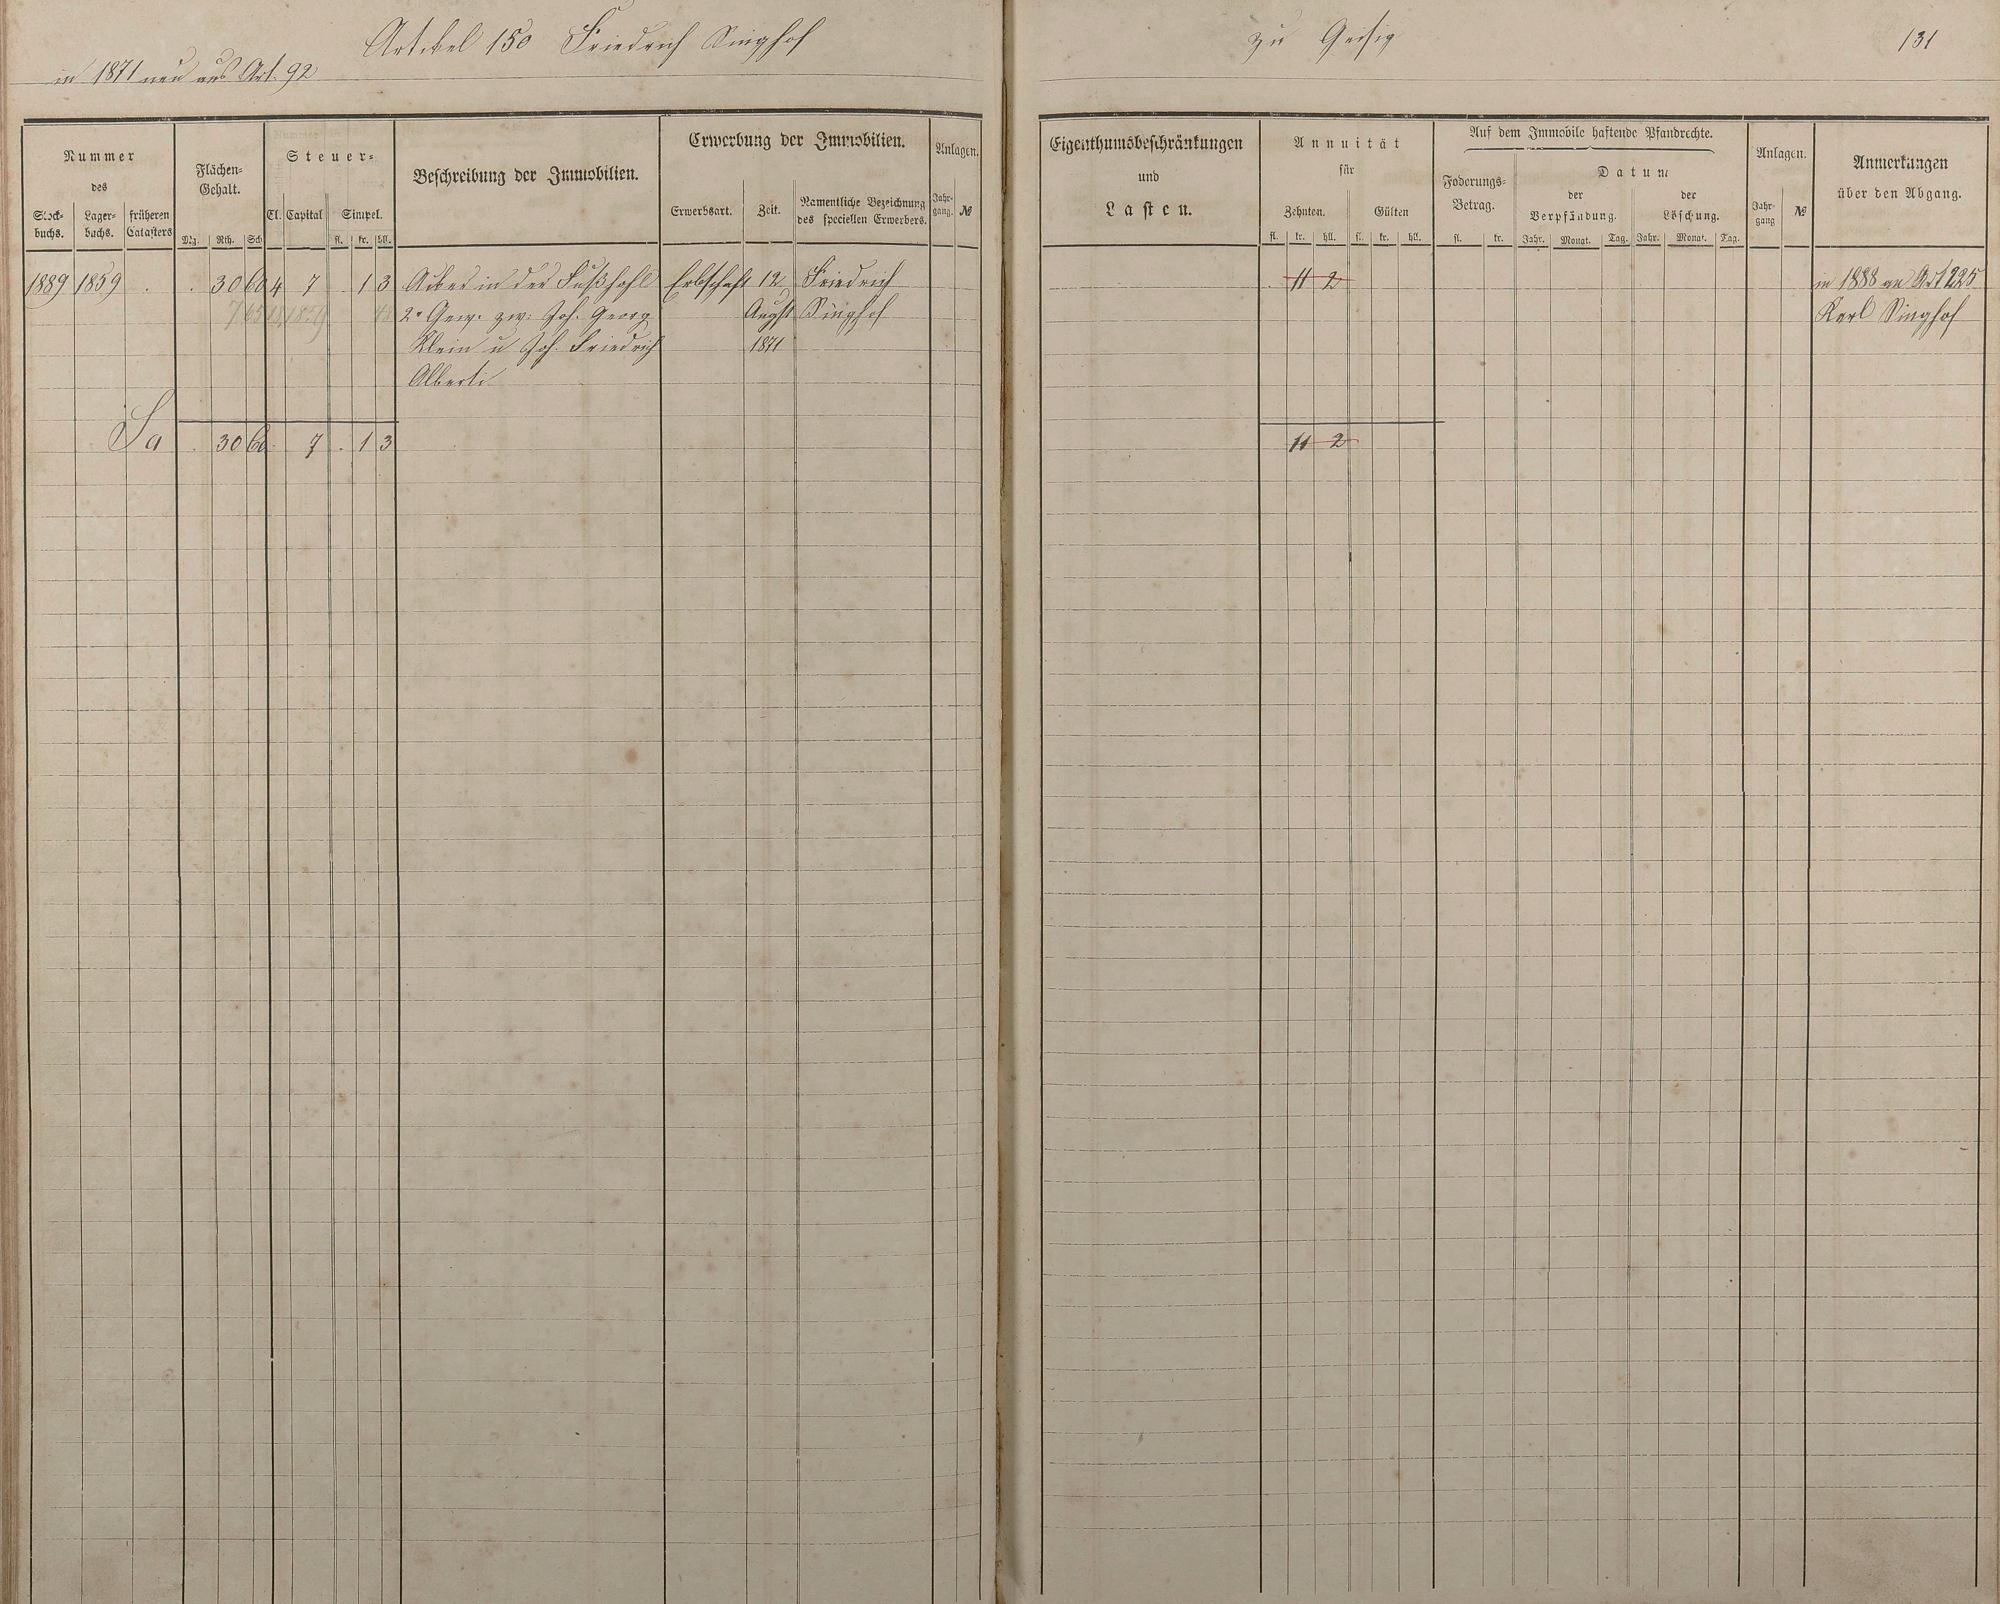 Artikel 150 Friedrich Singhof
in 1871 neu aus Art. 92
Nummer
des
Stock-
buchs.
Lager-
buchs.
früheren
Catasters
Flächen-
Gehalt.
Mg. Rth. Sch
Steuer-
Cl. Capital Simpel.
fl. kr. hll.
Beschreibung der Immobilien.
Erwerbung der Immobilien.
Erwerbsart. Zeit.
Namentliche Bezeichnung
des speciellen Erwerbers.
Anlagen.
Jahr-
gang. №
1889 1859 . . 30 60 4 7 . 1 3 Acker in der Fußhohl Erbschaft 12 Friedrich
2r Gew. zw: Joh. Georg Augst Singhof
Klein u Joh. Friedrich 1871
Alberti
Sa . 30 60 7 . 1 3
zu Geisig
131
Eigenthumsbeschränkungen
und
Lasten.
Annuität
für
Zehnten. Gülten
fl. kr. hll. fl. kr. hll.
Auf dem Immobile haftende Pfandrechte.
Foderungs-
Betrag.
fl. kr.
Datum
der
Verpfändung.
der
Löschung.
Jahr. Monat. Tag. Jahr. Monat. Tag.
Anlagen.
Jahr-
gang №
Anmerkungen
über den Abgang.
. 11 2 in 1888 an Art 225
Karl Singhof
11 2